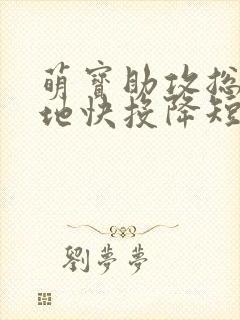 萌寶助攻總
地快投降短
劉夢夢